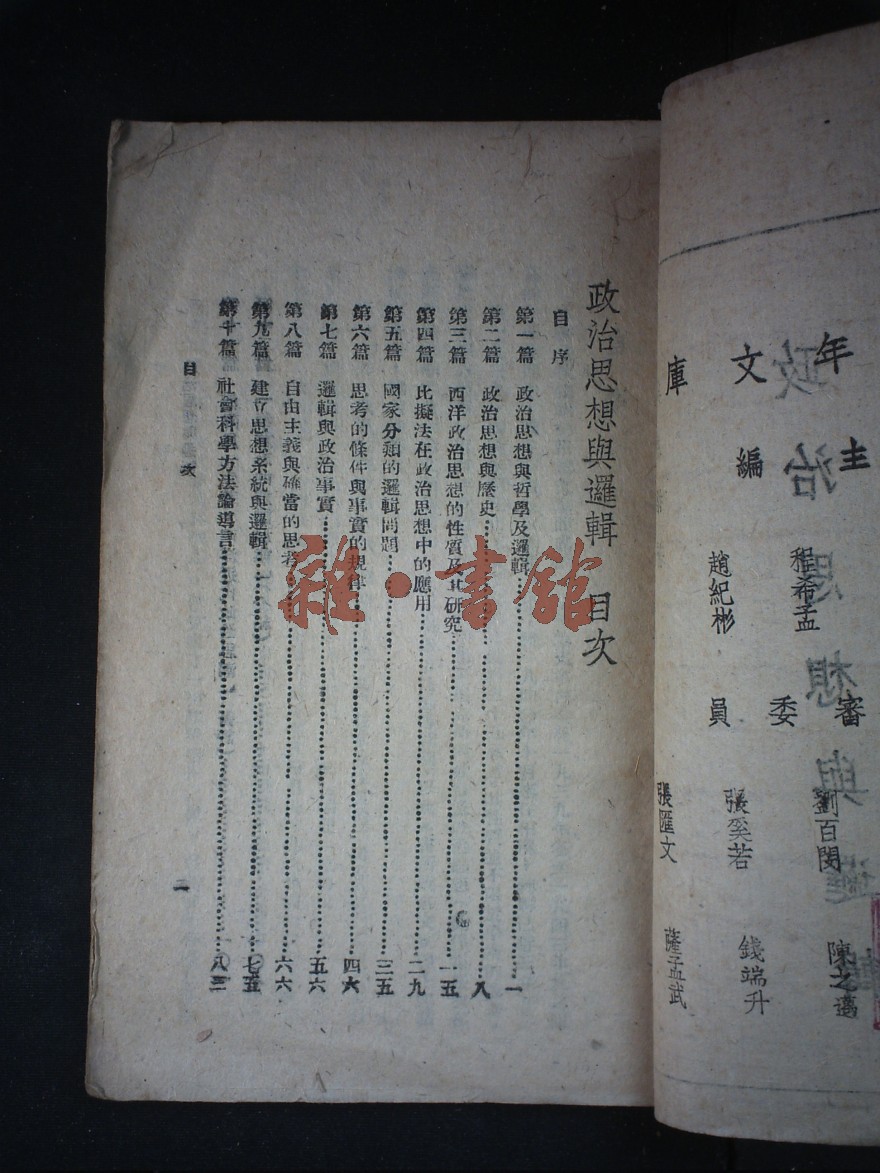 年文庫
主編
程希孟
趙紀彬
審委員
劉百閔
陳之邁
張奚若
錢端升
張匯文
薩孟武
政治思想與邏輯 目次
自序
第一篇 政治思想與哲學及邏輯……一
第二篇 政治思想與歷史……八
第三篇 西洋政治思想的性質及其研究……一五
第四篇 比擬法在政治思想中的應用……二九
第五篇 國家分類的邏輯問題……三五
第六篇 思考的條件與事實的規律……四六
第七篇 邏輯與政治事實……五六
第八篇 自由主義與確當的思考……六六
第九篇 建立思想系統與邏輯……七五
第十篇 社會科學方法論導言……八三
目次
二
雜·書館